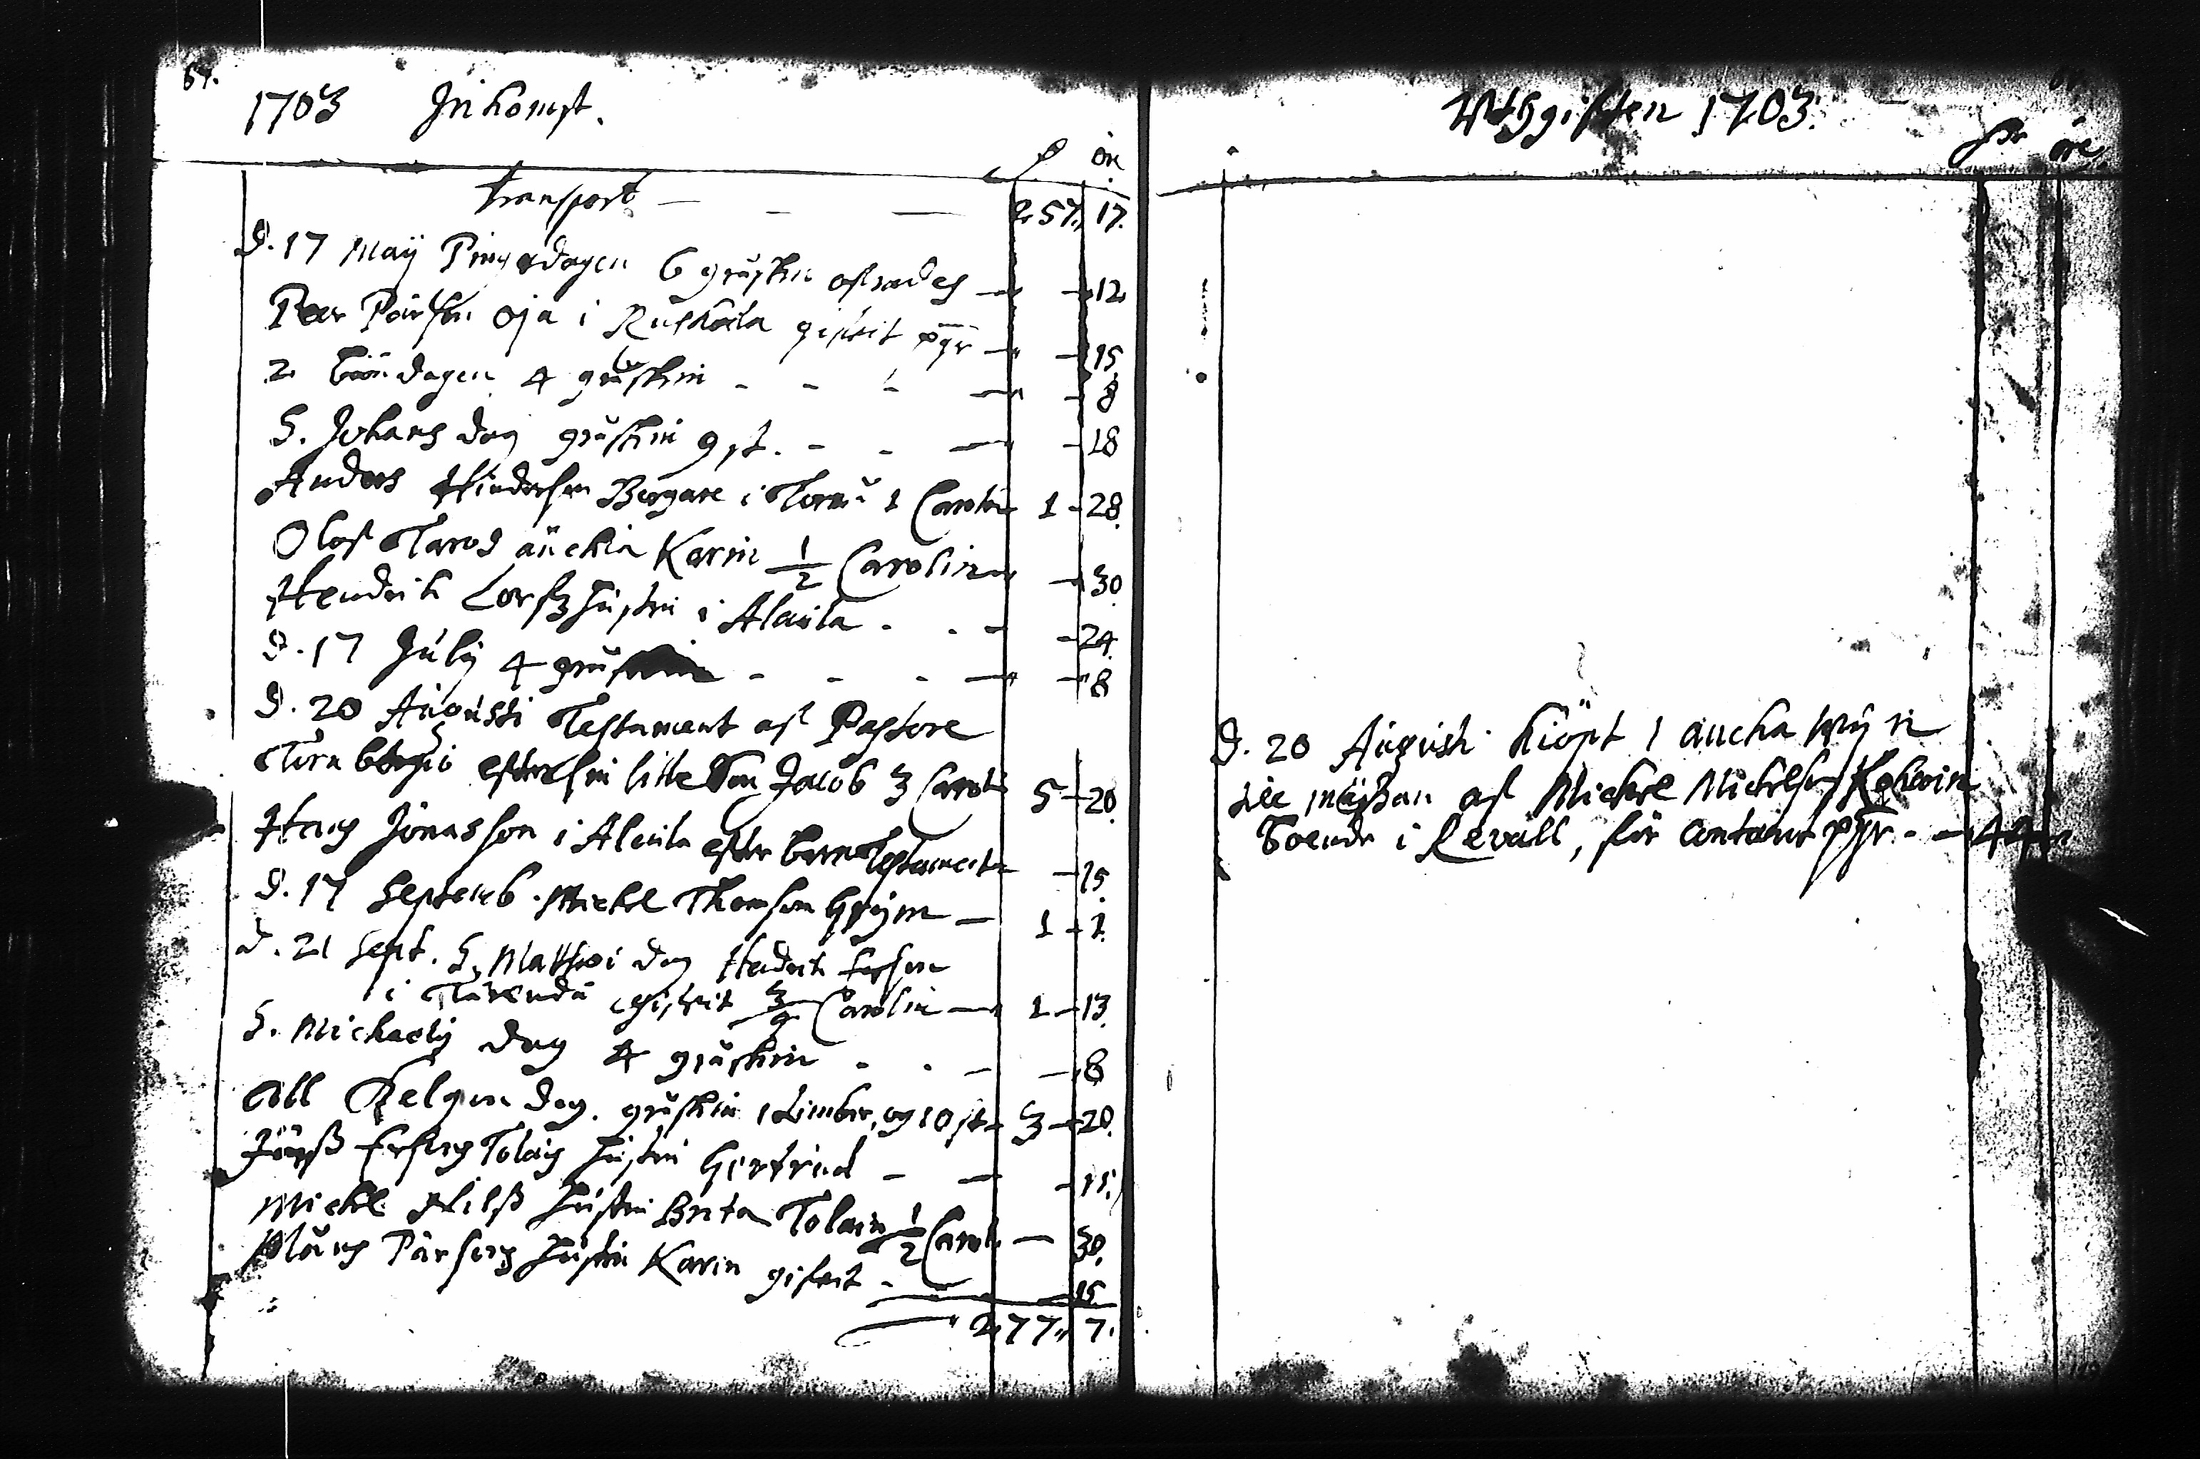 1703 Inkomst.
öre
Transport — — — 257. 17.
D. 17 Maÿ Pingesdagen 6 gråskin offrades — 12
Peer Pärsson Oja i Ruskåla gifvit pgr — 15
2 Bönedagen 4 gråskin - - - — 8
S. Johans dag gråskin 9 st. - - — 18
Anders Hindersson Borgare i Torne 1 Carolin 1 - 28.
Olof Tarvos änckia Karin 1/2 Carolin — 30
Hendrik Larsz hustru i Alaila - - - 24.
D. 17 Julÿ 4 gråskin - - - — 8
D. 20 Augusti Testament af Pastore
Tornbergio efter sin lille Son Jacob 3 Caroli 5 - 20.
Hans Jönasson i Alaila efter barns Testamente — 15
D. 17 Septemb. Mickel Thomson — 1 -
D. 21 Sept. S. Matthei dag Hendrik
i Tärendö gifvit Carolin — 1 - 13.
S. Michaelis dag 4 gråskin - - - — 8
All Helgon dag. gråskin 1 timber, og 10 st - 3 - 20.
Ersons Tolais hustru Gertrud - — 15.
Mickel Nilß hustru Brita Tolain 1/2 Caroli — 30.
Måns Pärsons hustru Karin gifvit - — 15.
277. 7.
Uthgiften 1703.
öre
D. 20 Augusti kiöpt 1 ancka wÿn
af Mickel Mickelson
Boende i Revall, för contant pgr. - — 44